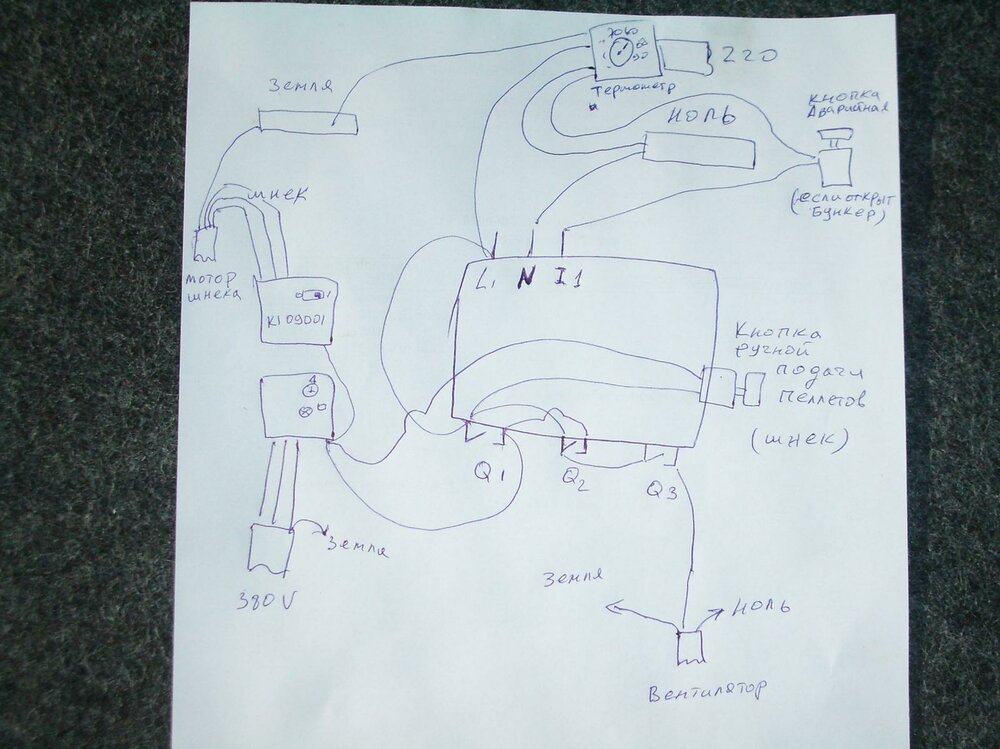 Земля
220
Термометр
Ноль
Кнопка
Аварийная
(если открыт
Бункер)
шнек
мотор
шнека
KI09001
L1 N I1
Кнопка
ручной
подачи
пеллетов
(шнек)
Q1
Q2
Q3
Земля
380V
Земля
Ноль
Вентилятор